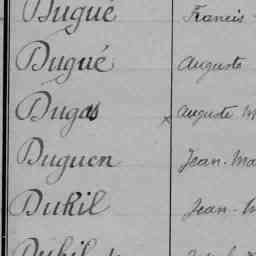 Dugué Francis
Dugué Auguste
Dugas x Auguste M
Duguen Jean-Ma
Duhil Jean-M
Duhil